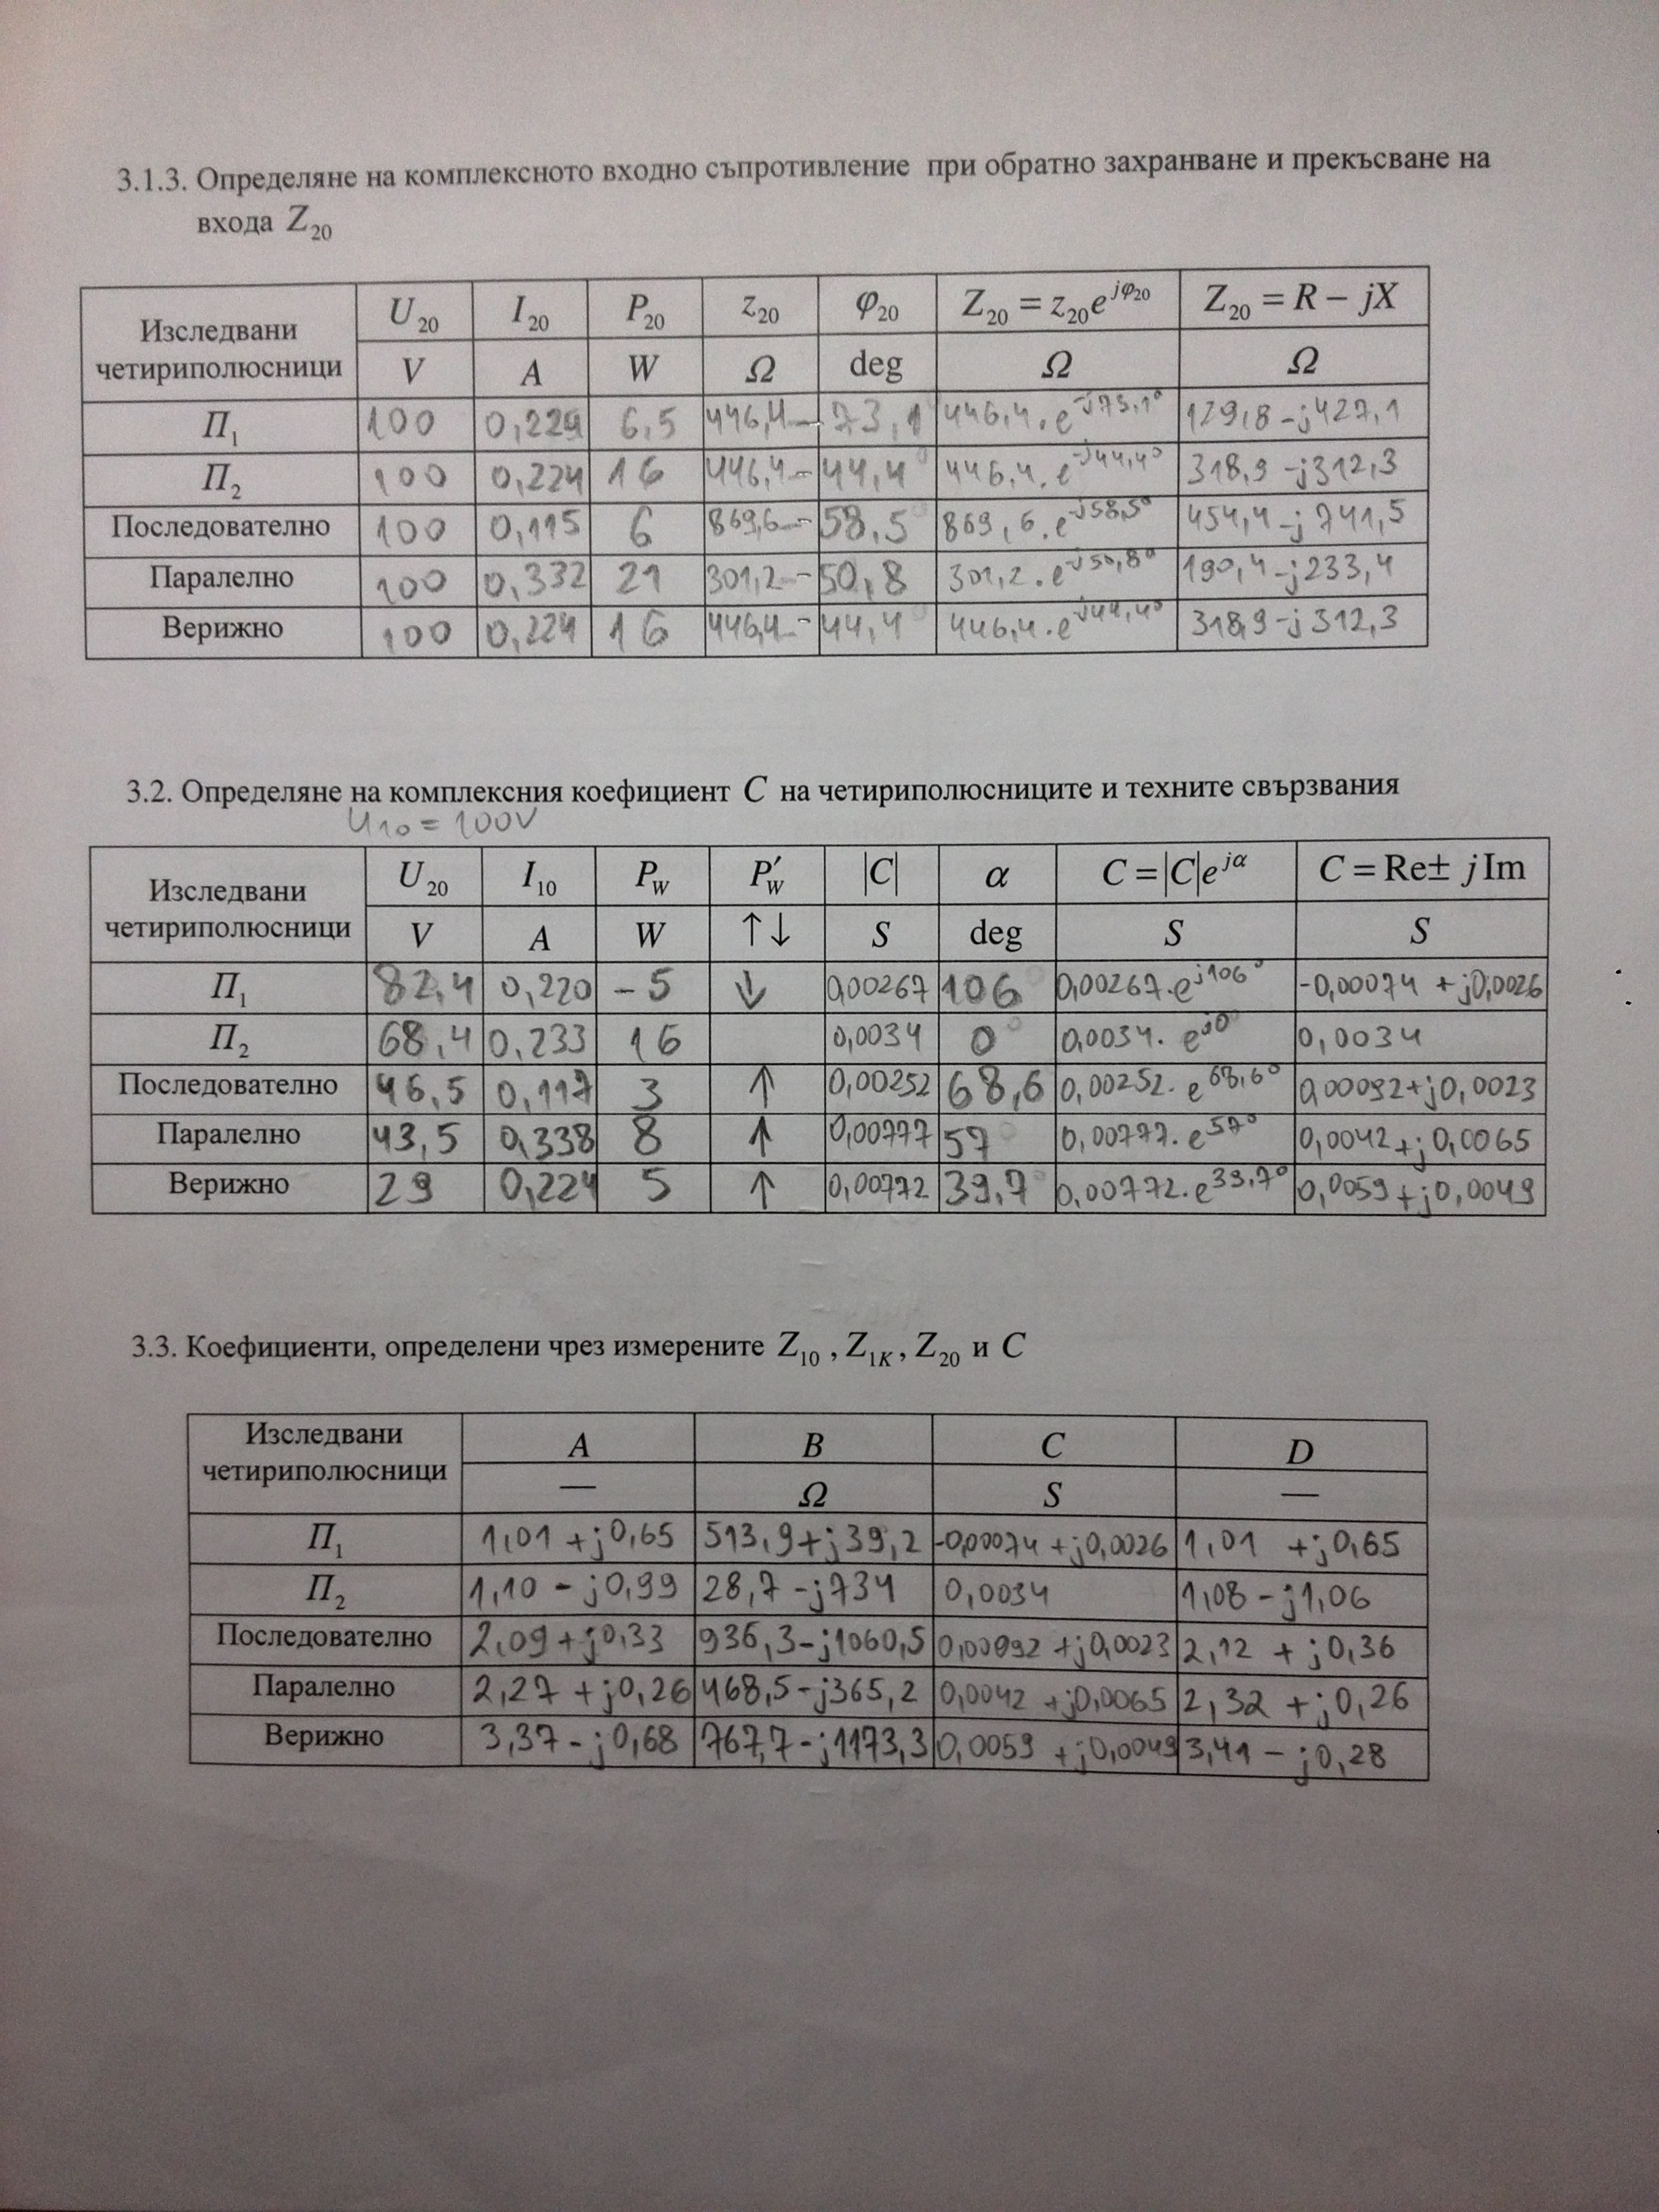 3.1.3. Определяне на комплексното входно съпротивление при обратно захранване и прекъсване на
входа Z20
Изследвани четириполюсници U20 I20 P20 z20 φ20 Z20 = z20e^jφ20 Z20 = R − jX
V A W Ω deg Ω Ω
П1 100 0,224 6,5 446,4 −73,1 446,4.e^-j73,1° 129,8-j427,1
П2 100 0,224 16 446,4 −44,4° 446,4.e^-j44,4° 318,9-j312,3
Последователно 100 0,115 6 869,6 −58,5° 869,6.e^-j58,5° 454,4-j741,5
Паралелно 100 0,332 21 301,2 −50,8 301,2.e^-j50,8° 190,4-j233,4
Верижно 100 0,224 16 446,4 −44,4° 446,4.e^-j44,4° 318,9-j312,3
3.2. Определяне на комплексния коефициент C на четириполюсниците и техните свързвания
U10 = 100V
Изследвани четириполюсници U20 I10 PW P′W |C| α C = |C|e^jα C = Re± jIm
V A W ↑↓ S deg S S
П1 82,4 0,220 -5 ↓ 0,00267 106° 0,00267.e^j106° -0,00074 +j0,0026
П2 68,4 0,233 16 0,0034 0° 0,0034. e^j0° 0,0034
Последователно 46,5 0,117 3 ↑ 0,00252 68,6 0,00252. e^68,6° 0,00092+j0,0023
Паралелно 43,5 0,338 8 ↑ 0,00777 57° 0,00777. e^57° 0,0042+j0,0065
Верижно 29 0,224 5 ↑ 0,00772 39,7° 0,00772.e^39,7° 0,0059+j0,0049
3.3. Коефициенти, определени чрез измерените Z10 , Z1K , Z20 и C
Изследвани четириполюсници A B C D
— Ω S —
П1 1,01 +j0,65 513,9+j39,2 -0,00074 +j0,0026 1,01 +j0,65
П2 1,10 - j0,99 28,7-j734 0,0034 1,08-j1,06
Последователно 2,09+j0,33 936,3-j1060,5 0,00092 +j0,0023 2,12 + j0,36
Паралелно 2,27 +j0,26 468,5-j365,2 0,0042 +j0,0065 2,32 +j0,26
Верижно 3,37-j0,68 767,7-j1173,3 0,0059 +j0,0049 3,41 - j0,28